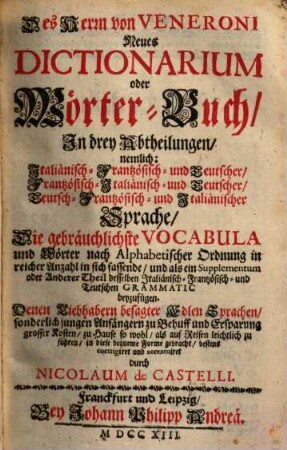 Des Herrn von VENERONI
Neues
DICTIONARIUM
oder
Wörter-Buch/
In drey Abtheilungen/
nemlich:
Italiänisch-Frantzösisch- und Teutscher/
Frantzösisch-Italiänisch- und Teutscher/
Teutsch-Frantzösisch- und Italiänischer
Sprache/
Die gebräuchlichste VOCABULA
und Wörter nach Alphabetischer Ordnung in
reicher Anzahl in sich fassende/ und als ein Supplementum
oder Anderer Theil desselben Italiänisch-Frantzösisch- und
Teutschen GRAMMATIC
beyzufügen.
Denen Liebhabern besagter Edlen Sprachen/
sonderlich jungen Anfängern zu Behuff und Ersparung
grosser Kosten/ zu Hause so wohl/ als auf Reisen leichtlich zu
führen/ in diese bequeme Forme gebracht/ bestens
corrigiret und
durch
NICOLAUM de CASTELLI.
Franckfurt und Leipzig/
Bey Johann Philipp Andreä.
M DCC XIII.